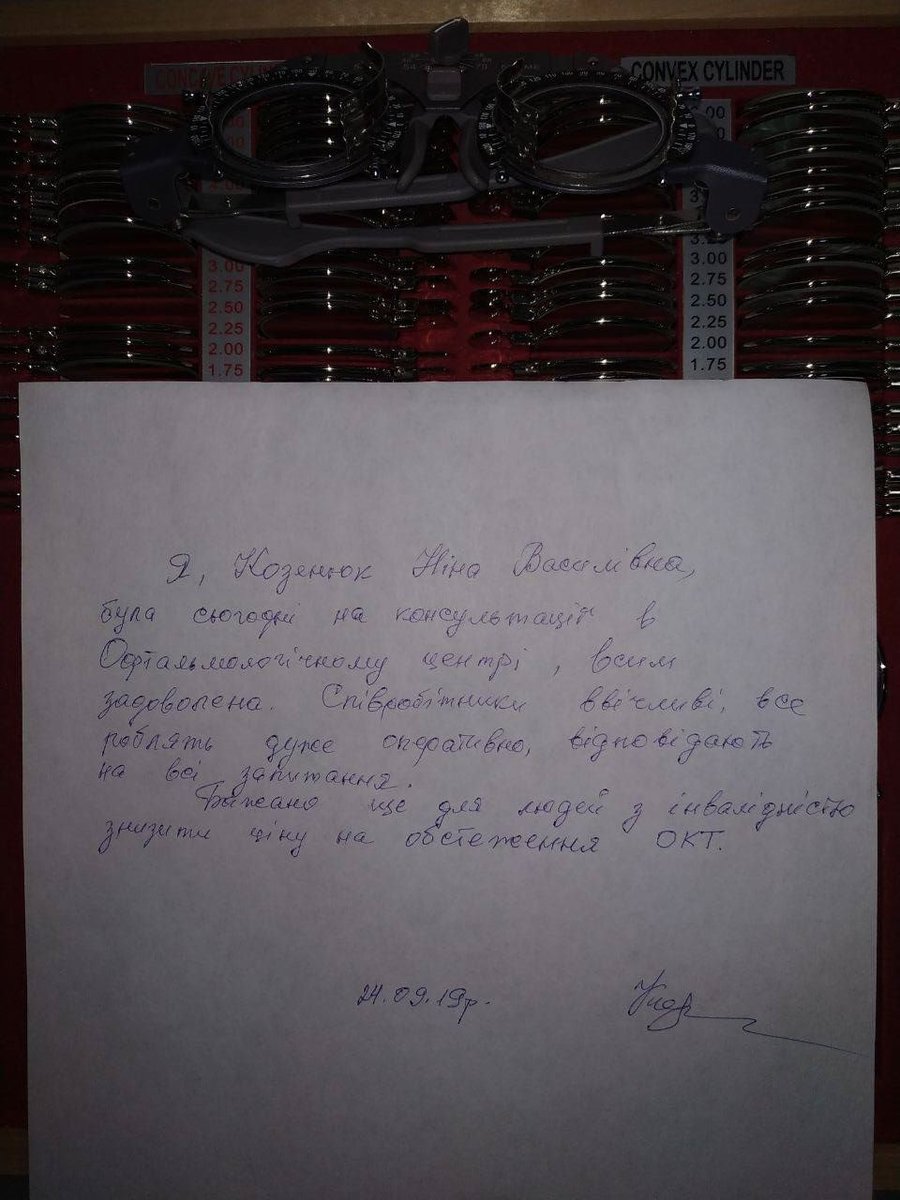 CONCAVE CYLIN
CONVEX CYLINDER
3.00
2.75
2.50
2.25
2.00
1.75
3.25
3.00
2.75
2.50
2.25
2.00
1.75
Я, Козенюк Ніна Василівна,
була сьогодні на консультації в
Офтальмологічному центрі, всим
задоволена. Співробітники ввічливі, все
роблять дуже оперативно, відповідають
на всі запитання.
Бажано ще для людей з інвалідністю
знизити ціну на обстеження ОКТ.
24.09.19р.